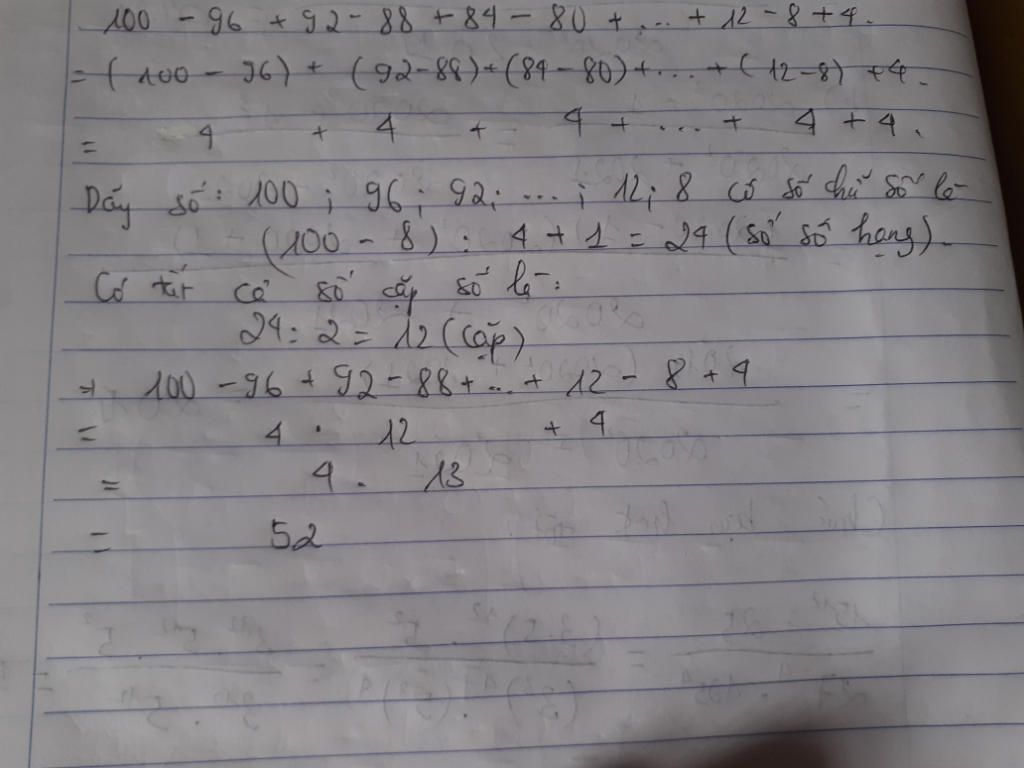 100 - 96 + 92 - 88 + 84 - 80 + ... + 12 - 8 + 4.
= (100 - 96) + (92 - 88) + (84 - 80) + ... + (12 - 8) + 4.
= 4 + 4 + 4 + ... + 4 + 4.
Dãy số: 100 ; 96 ; 92 ; ... ; 12 ; 8 có số chữ số là
(100 - 8) : 4 + 1 = 24 (số số hạng).
Có tất cả số cặp số là:
24 : 2 = 12 (cặp)
→ 100 - 96 + 92 - 88 + ... + 12 - 8 + 4
= 4 . 12 + 4
= 4 . 13
= 52